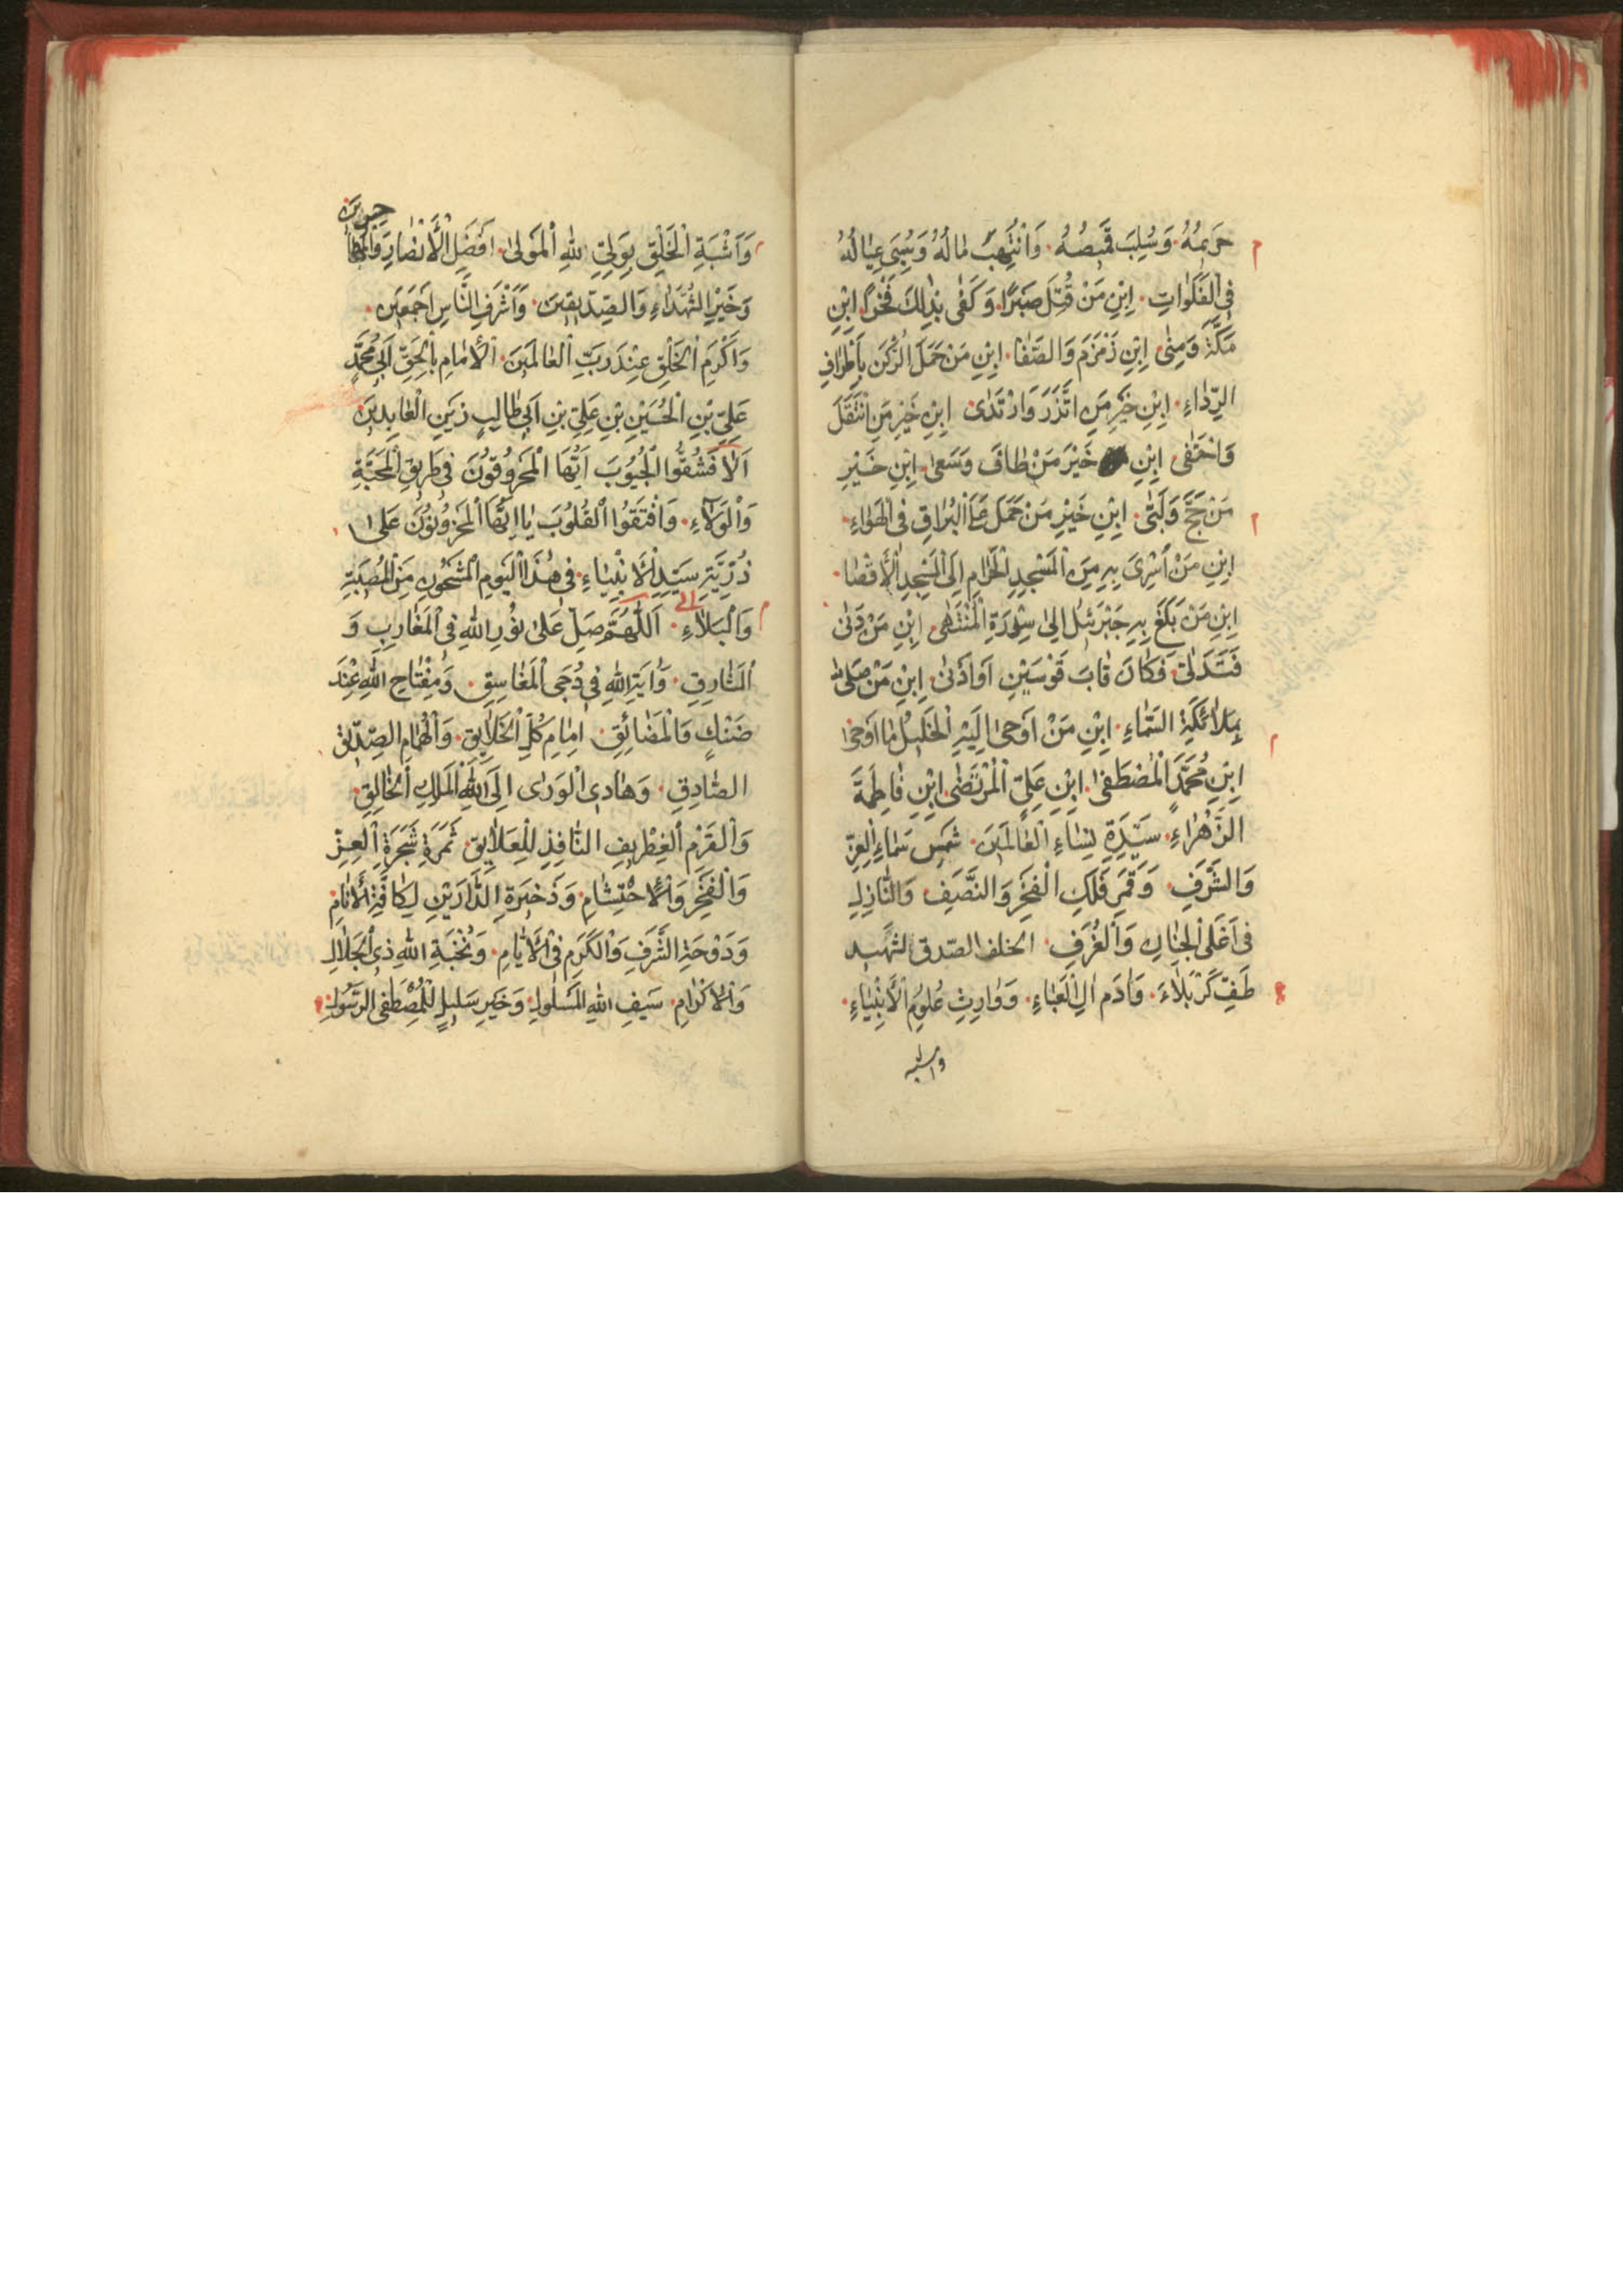 حَرِيمُهُ وَسُلِبَ قَمِيصُهُ وَانْتُهِبَ مَالُهُ وَسُبِيَ عِيَالُهُ
فِي الْفَلَوَاتِ اِبْنِ مَنْ قُتِلَ صَبْرًا وَكَفٰى بِذٰلِكَ فَخْرًا اِبْنِ
مَكَّةَ وَمِنٰى اِبْنِ زَمْزَمَ وَالصَّفَا اِبْنِ مَنْ حَمَلَ الرُّكْنَ بِاَطْرَافِ
الرِّدَاءِ اِبْنِ خَيْرِ مَنِ اتَّزَرَ وَارْتَدٰى اِبْنِ خَيْرِ مَنِ انْتَقَلَ
وَاحْتَفٰى اِبْنِ خَيْرِ مَنْ طَافَ وَسَعٰى اِبْنِ خَيْرِ
مَنْ حَجَّ وَلَبّٰى اِبْنِ خَيْرِ مَنْ حُمِلَ عَلَى الْبُرَاقِ فِي الْهَوَاءِ
اِبْنِ مَنْ اُسْرِيَ بِهِ مِنَ الْمَسْجِدِ الْحَرَامِ اِلَى الْمَسْجِدِ الْاَقْصَا
اِبْنِ مَنْ بَلَغَ بِهِ جَبْرَئِلُ اِلٰى سِدْرَةِ الْمُنْتَهٰى اِبْنِ مَنْ دَنٰى
فَتَدَلّٰى فَكَانَ قَابَ قَوْسَيْنِ اَوْ اَدْنٰى اِبْنِ مَنْ صَلّٰى
بِمَلَائِكَةِ السَّمَاءِ اِبْنِ مَنْ اَوْحٰى اِلَيْهِ الْجَلِيلُ مَا اَوْحٰى
اِبْنِ مُحَمَّدٍ الْمُصْطَفٰى اِبْنِ عَلِيٍّ الْمُرْتَضٰى اِبْنِ فَاطِمَةَ
الزَّهْرَاءِ سَيِّدَةِ نِسَاءِ الْعَالَمِينَ شَمْسِ سَمَاءِ الْعِزِّ
وَالشَّرَفِ وَقَمَرِ فَلَكِ الْفَخْرِ وَالنَّصَفِ وَالنَّازِلِ
فِي اَعْلَى الْجِنَانِ وَالْغُرَفِ الخلف الصّدق لشهيد
طَفِّ كَرْبَلَاءَ وَاٰدَمِ اٰلِ الْعَبَاءِ وَوَارِثِ عُلُومِ الْاَنْبِيَاءِ
واشبه
وَاَشْبَهِ الْخَلْقِ بِوَلِيِّ اللهِ الْمَوْلٰى اَفْضَلِ الْاَنْصَارِ وَالْمُهَاجِرِينَ
وَخَيْرِ الشُّهَدَاءِ وَالصِّدِّيقِينَ وَاَشْرَفِ النَّاسِ اَجْمَعِينَ
وَاَكْرَمِ الْخَلْقِ عِنْدَ رَبِّ الْعَالَمِينَ الْاِمَامِ بِالْحَقِّ اَبِي مُحَمَّدٍ
عَلِيِّ بْنِ الْحُسَيْنِ بْنِ عَلِيِّ بْنِ اَبِي طَالِبٍ زَيْنِ الْعَابِدِينَ
اَلَا فَشُقُّوا الْجُيُوبَ اَيُّهَا الْمَحْرُوقُونَ فِي طَرِيقِ الْمَحَبَّةِ
وَالْوَلَاءِ وَافْتَقُوا الْقُلُوبَ يَا اَيُّهَا الْمَحْزُونُونَ عَلٰى
ذُرِّيَّةِ سَيِّدِ الْاَنْبِيَاءِ فِي هٰذَا الْيَوْمِ الْمَشْحُونِ مِنَ الْمُصِيبَةِ
وَالْبَلَاءِ اَللّٰهُمَّ صَلِّ عَلٰى نُورِ اللهِ فِي الْمَغَارِبِ وَ
الْمَشَارِقِ وَاٰيَةِ اللهِ فِي دُجَى الْمَغَاسِقِ وَمِفْتَاحِ اللهِ عِنْدَ
ضَنْكِ وَالْمَضَائِقِ اِمَامِ كُلِّ الْخَلَايِقِ وَالْهُمَامِ الصِّدِّيقِ
الصَّادِقِ وَهَادِي الْوَرٰى اِلَى اللهِ الْمَلِكِ الْخَالِقِ
وَالْقَرْمِ الْغِطْرِيفِ النَّافِذِ لِلْعَلَايِقِ ثَمَرَةِ شَجَرَةِ الْعِزِّ
وَالْفَخْرِ وَالْاِحْتِشَامِ وَذَخِيرَةِ الدَّارَيْنِ لِكَافَّةِ الْاَنَامِ
وَدَوْحَةِ الشَّرَفِ وَالْكَرَمِ فِي الْاَيَّامِ وَنُخْبَةِ اللهِ ذِي الْجَلَالِ
وَالْاِكْرَامِ سَيْفِ اللهِ الْمَسْلُولِ وَخَيْرِ سَلِيلٍ لِلْمُصْطَفَى الرَّسُولِ